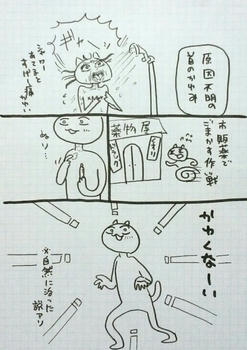 原因不明の
首のかゆみ
シャワー
あてると
すげー痛がゆい
市販薬で
ごまかす作戦
薬物屋
ぬり…
かゆくなーい
※自然に治った
説アリ